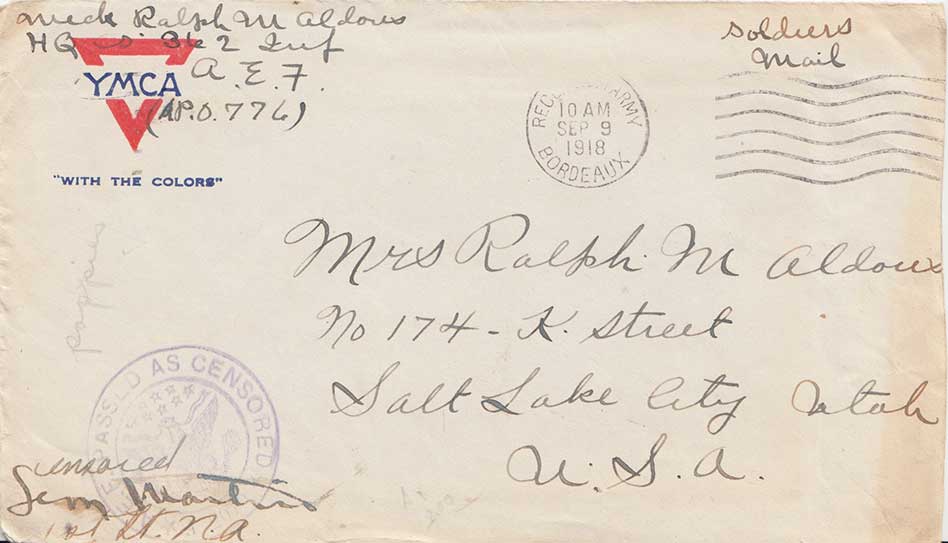 Mech Ralph M Aldous
HQ Co 362 Inf
A.E.F.
(A.P.O. 776)
YMCA
"WITH THE COLORS"
soldiers
Mail
ARMY
10 AM
SEP 9
1918
BORDEAUX
Mrs Ralph M Aldous
No 174 - K. street
Salt Lake City Utah
U.S.A.
poppies
PASSED AS CENSORED
censored
1st Lt. N.A.